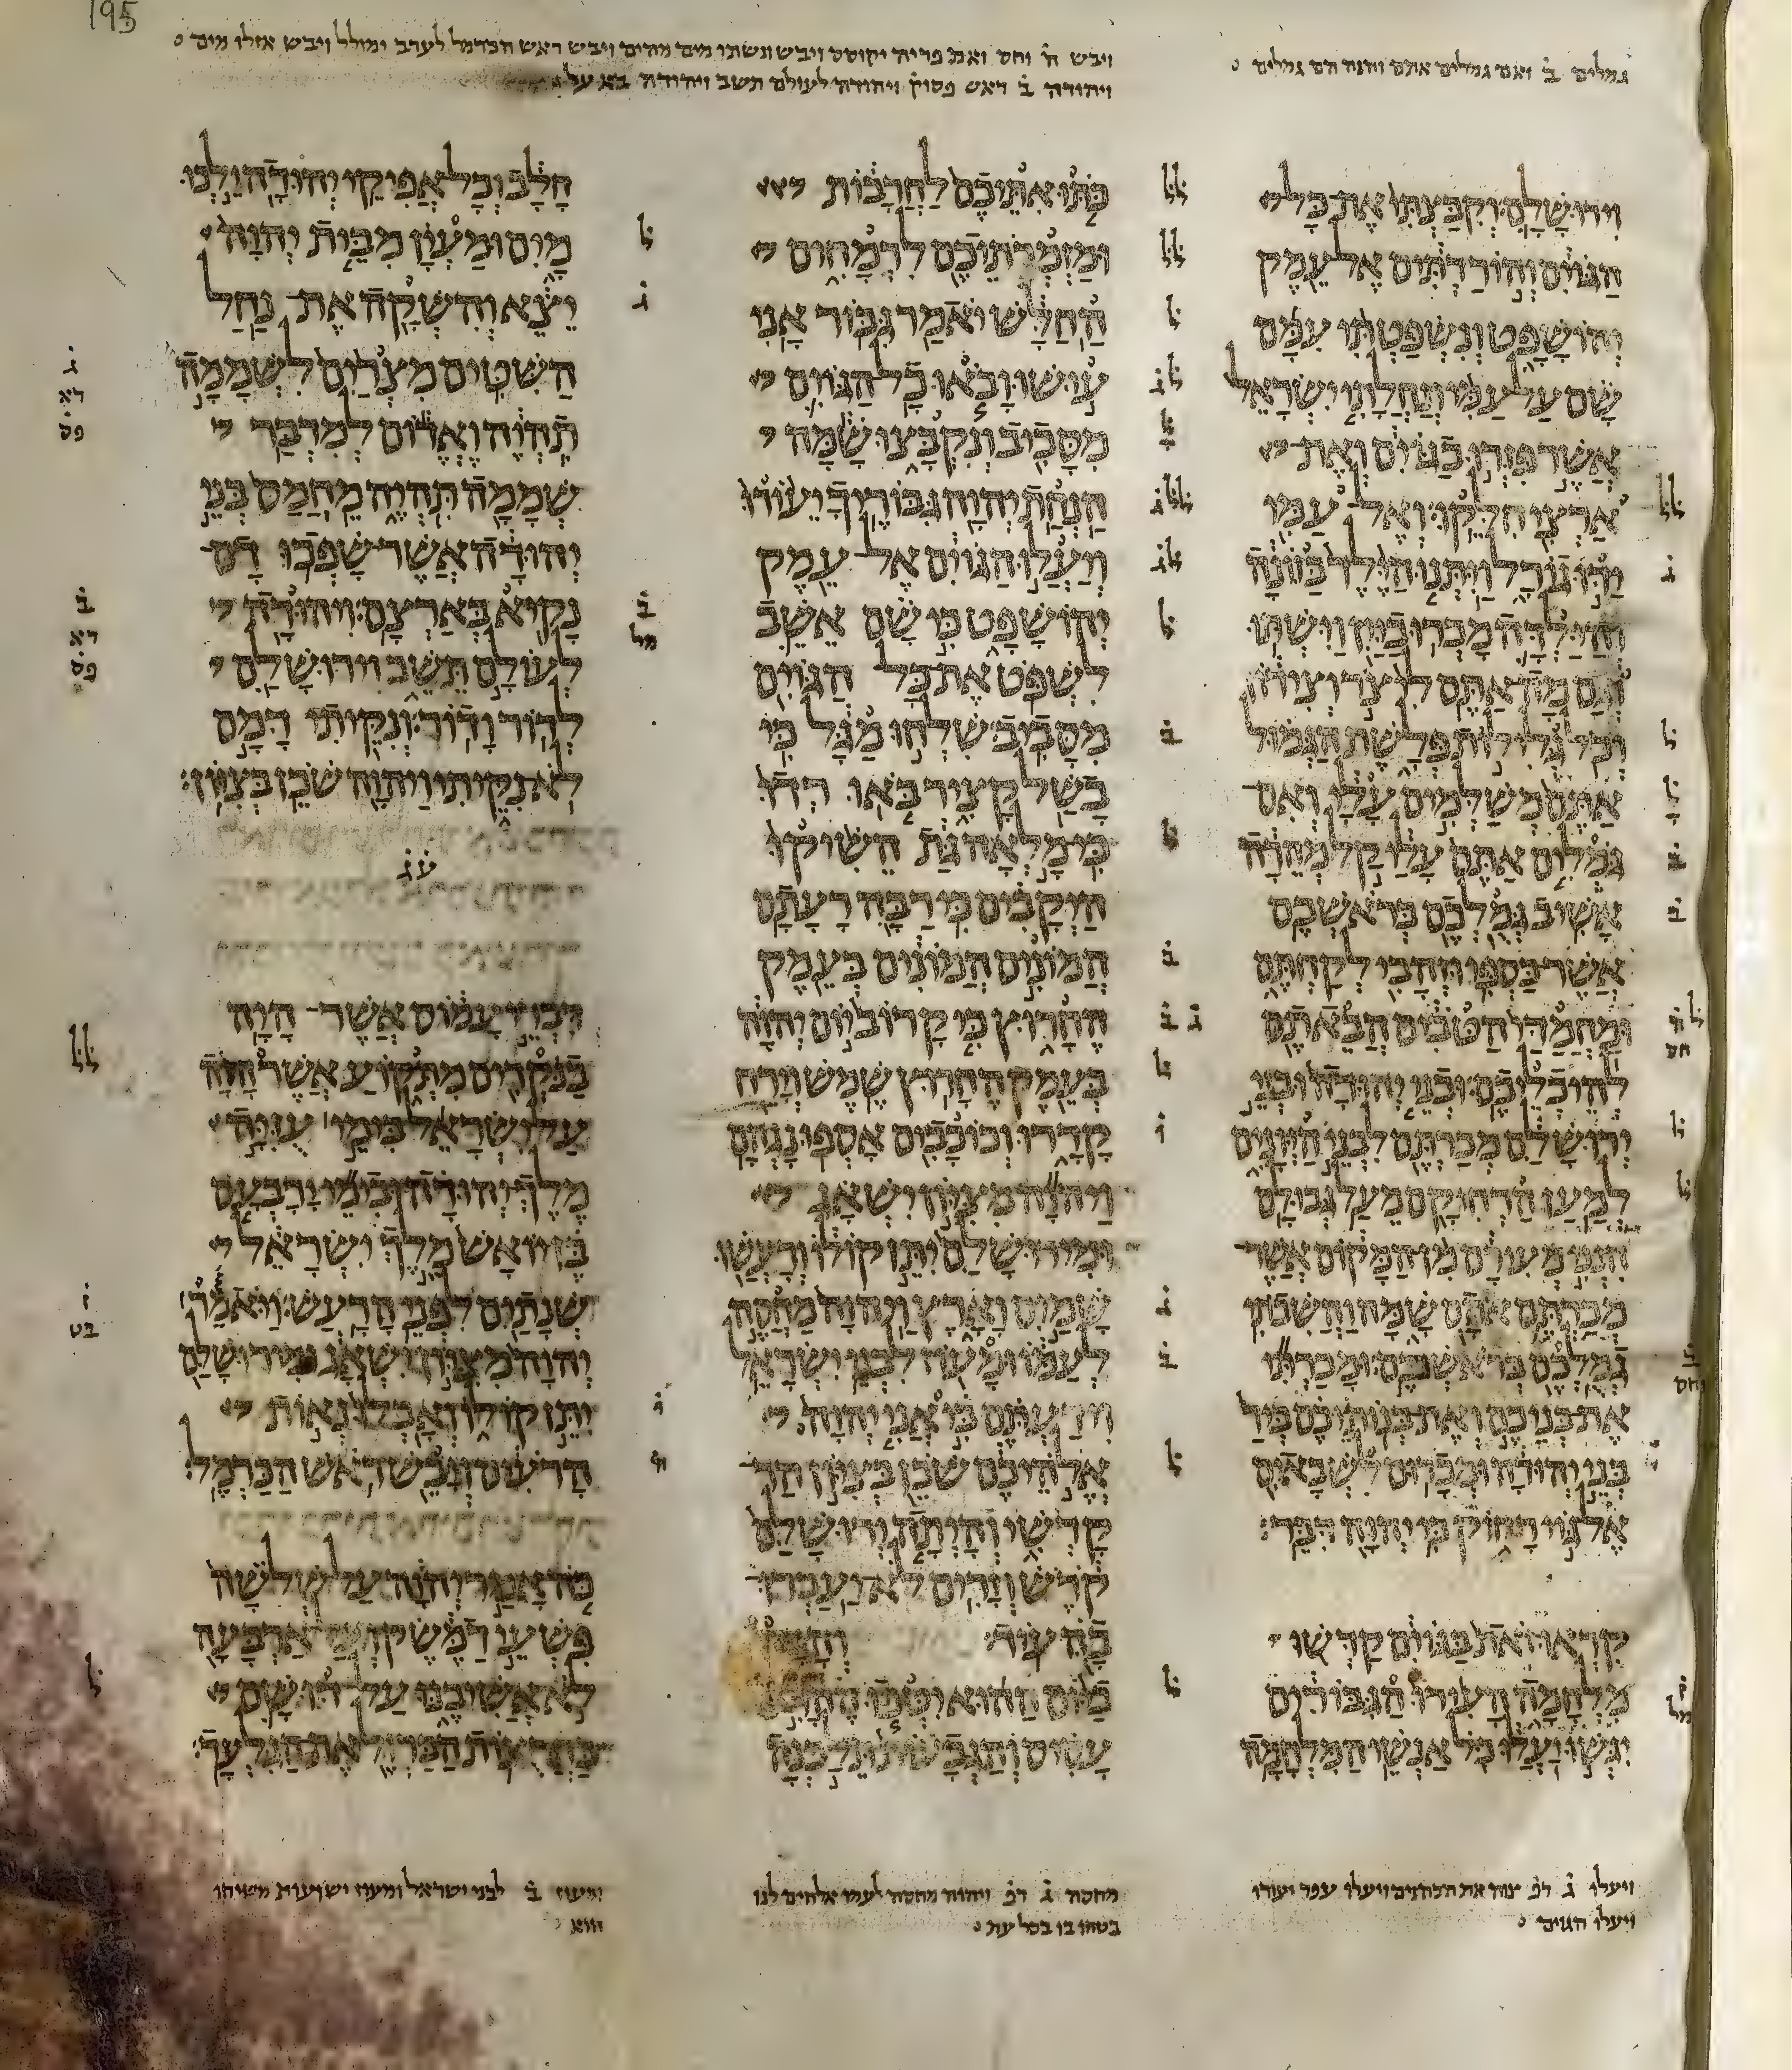 גמלים ב ואם גמלים אתם והנה הם גמלים
ויבש ה וחס ואת פריה יקוסס ויבש ונשתו מים מהים ויבש ראש הכרמל לערב ימולל ויבש אזלו מים
ויהודה ב ראש פסוק ויהודה לעולם תשב ויהודה בא על
וירושלם וקבצתי את כל
הגוים והורדתים אל עמק
יהושפט ונשפטתי עמם
שם על עמי ונחלתי ישראל
אשר פזרו בגוים ואת
ארצי חלקו ואל עמי
ידו גורל ויתנו הילד בזונה
והילדה מכרו ביין וישתו
וגם מה אתם לי צר וצידון
וכל גלילות פלשת הגמול
אתם משלמים עלי ואם
גמלים אתם עלי קל מהרה
אשיב גמלכם בראשכם
אשר כספי וזהבי לקחתם
ומחמדי הטבים הבאתם
להיכליכם ובני יהודה ובני
ירושלם מכרתם לבני היונים
למען הרחיקם מעל גבולם
הנני מעירם מן המקום אשר
מכרתם אתם שמה והשבתי
גמלכם בראשכם ומכרתי
את בניכם ואת בנותיכם ביד
בני יהודה ומכרום לשבאים
אל גוי רחוק כי יהוה דבר
קראו זאת בגוים קדשו
מלחמה העירו הגבורים
יגשו יעלו כל אנשי המלחמה
כתו אתיכם לחרבות
ומזמרתיכם לרמחים
החלש יאמר גבור אני
עושו ובאו כל הגוים
מסביב ונקבצו שמה
הנחת יהוה גבוריך יעורו
ויעלו הגוים אל עמק
יהושפט כי שם אשב
לשפט את כל הגוים
מסביב שלחו מגל כי
בשל קציר באו רדו
כי מלאה גת השיקו
היקבים כי רבה רעתם
המונים המונים בעמק
החרוץ כי קרוב יום יהוה
בעמק החרוץ שמש וירח
קדרו וכוכבים אספו נגהם
ויהוה מציון ישאג
ומירושלם יתן קולו ורעשו
שמים וארץ ויהוה מחסה
לעמו ומעוז לבני ישראל
וידעתם כי אני יהוה
אלהיכם שכן בציון הר
קדשי והיתה ירושלם
קדש וזרים לא יעברו
בה עוד והיה
ביום ההוא יטפו ההרים
עסיס והגבעות תלכנה
חלב וכל אפיקי יהודה ילכו
מים ומעין מבית יהוה
יצא והשקה את נחל
השטים מצרים לשממה
תהיה ואדום למדבר
שממה תהיה מחמס בני
יהודה אשר שפכו דם
נקיא בארצם ויהודה
לעולם תשב וירושלם
לדור ודור ונקיתי דמם
לא נקיתי ויהוה שכן בציון
עג
דברי עמוס אשר היה
בנקדים מתקוע אשר חזה
על ישראל בימי עזיה
מלך יהודה ובימי ירבעם
בן יואש מלך ישראל
שנתים לפני הרעש ויאמר
יהוה מציון ישאג ומירושלם
יתן קולו ואבלו נאות
הרעים ויבש ראש הכרמל
כה אמר יהוה על שלשה
פשעי דמשק ועל ארבעה
לא אשיבנו על דושם
בחרצות הברזל את הגלעד
ויעלו ג רפ יצוה את הכהנים ויעלו עפר יעורו
ויעלו הגוים
מחסה ג רפ ויהוה מחסה לעמו אלהים לנו
בטחו בו בכל עת
ומעוז ב לבני ישראל ומעוז ישועות משיחו
הוא